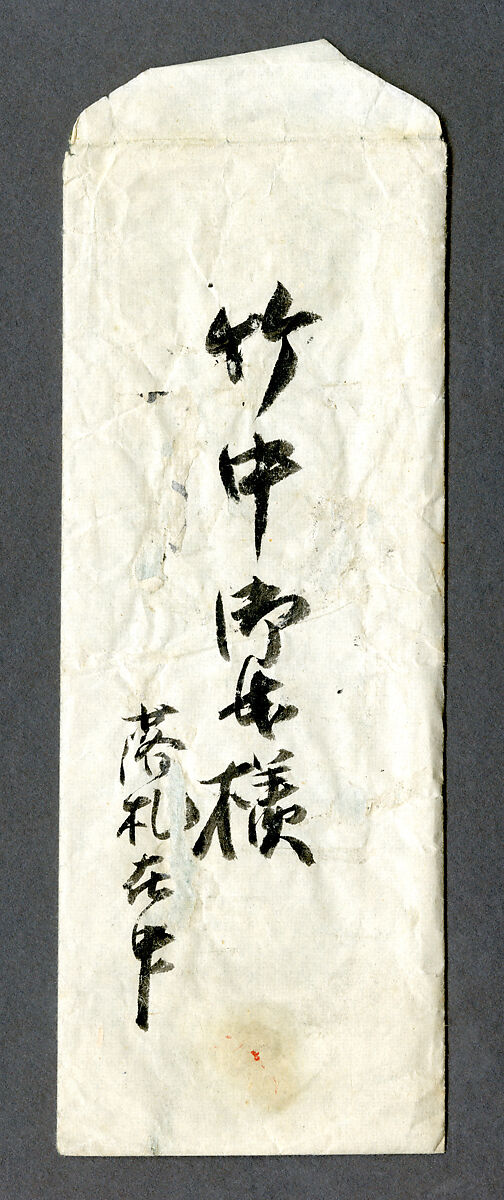 竹中御様
落札在中